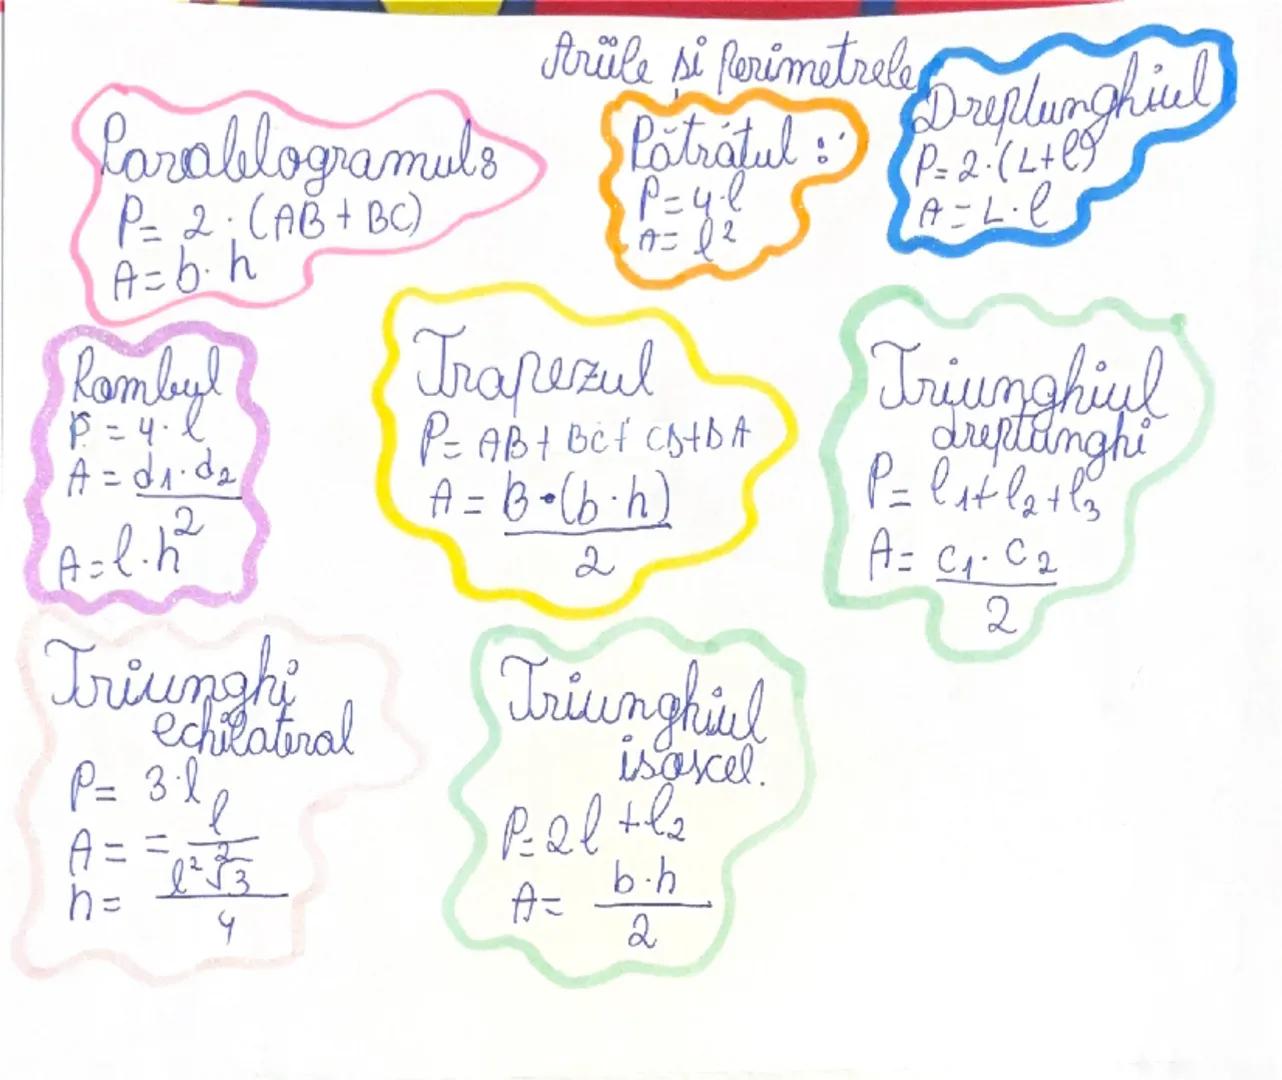 Ariile și Perimetrele
Paralelogramul:
P= 2·(AB+BC)
A=b·h
Pătrătul:
P=4·l
A= l²
Dreptunghiul
P=2·(L+l)
A=L·l
Rombul
P=4·l
A=d1·d2
2
A=l·h
Trapezul
P=AB+BC+CD+DA
A=B·(b·h)
2
Triunghiul
dreptunghi
P=l1+l2+l3
A=C1·C2
2
Triunghi
echilateral
P=3·l
A= = l
2
h= l²√3
4
Triunghiul
isoscel.
P=2l+l2
A= b·h
2